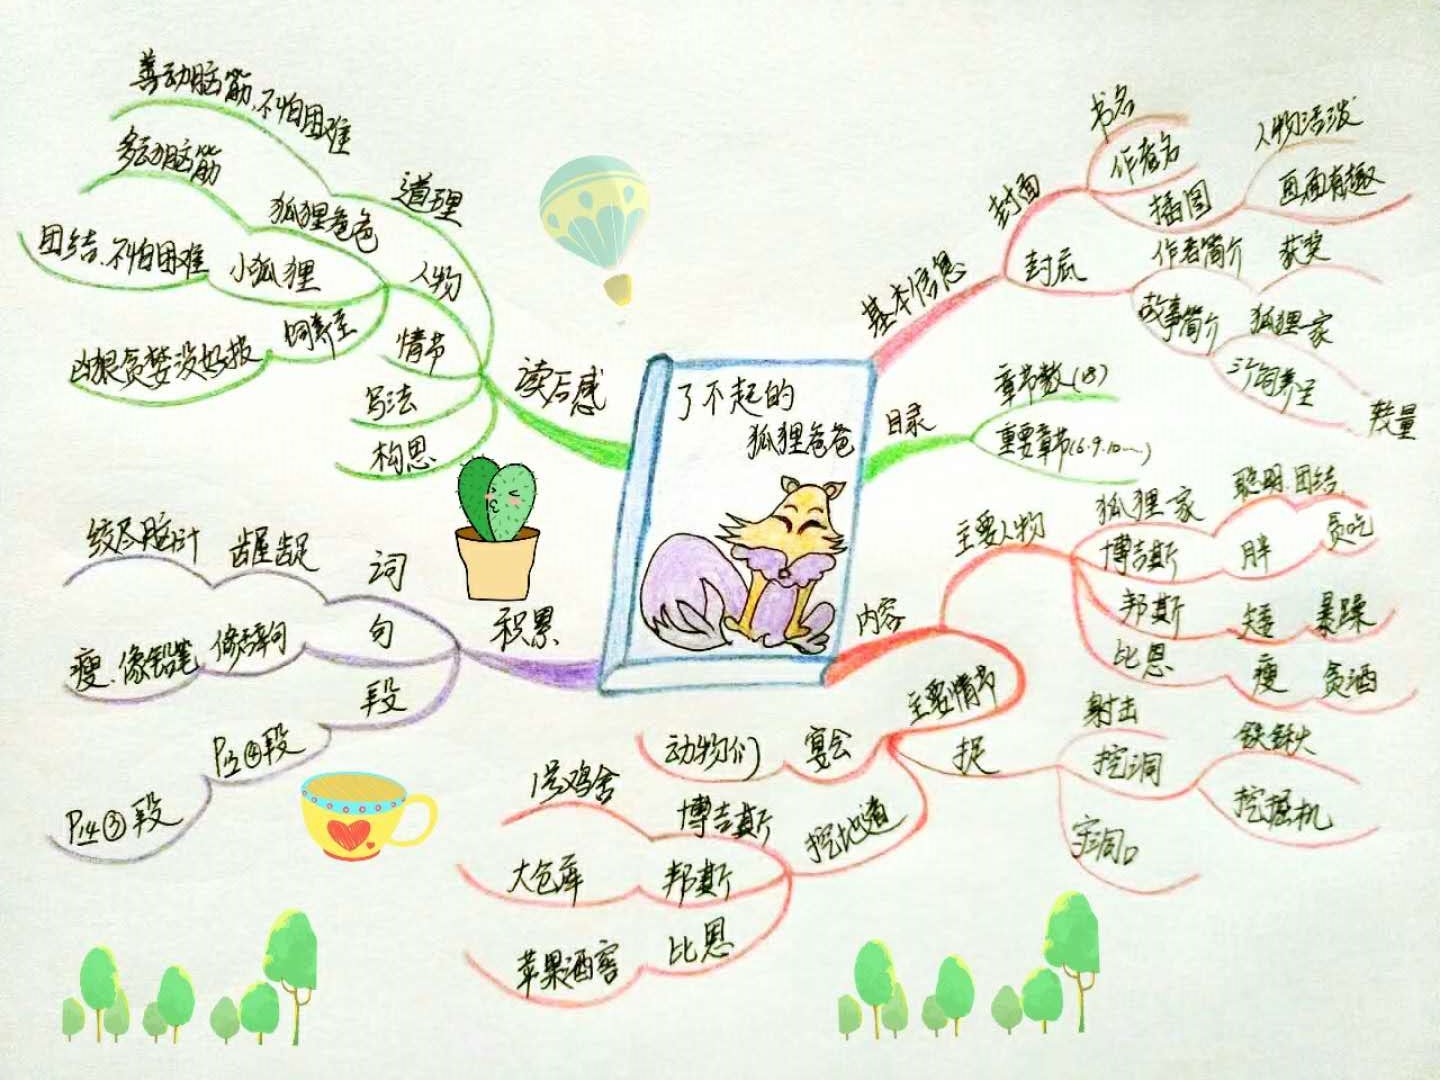 了不起的
狐狸爸爸
基本信息
封面
书名
作者名
插图
人物活泼
画面有趣
封底
作者简介
获奖
故事简介
狐狸一家
3个饲养主
较量
目录
章节数(18)
重要章节(6.9.10……)
内容
主要人物
狐狸家
聪明.团结
博吉斯
胖
贪吃
邦斯
矮
暴躁
比恩
瘦
贪酒
主要情节
捉
射击
挖洞
铁锹
挖掘机
守洞口
挖地道
博吉斯
1号鸡舍
邦斯
大仓库
比恩
苹果酒窖
宴会
动物们
积累
词
龌龊
绞尽脑汁
句
修辞句
瘦.像铅笔
段
P13④段
P14③段
读后感
道理
善动脑筋,不怕困难
人物
狐狸爸爸
多动脑筋
小狐狸
团结.不怕困难
饲养主
凶狠贪婪没好报
情节
写法
构思